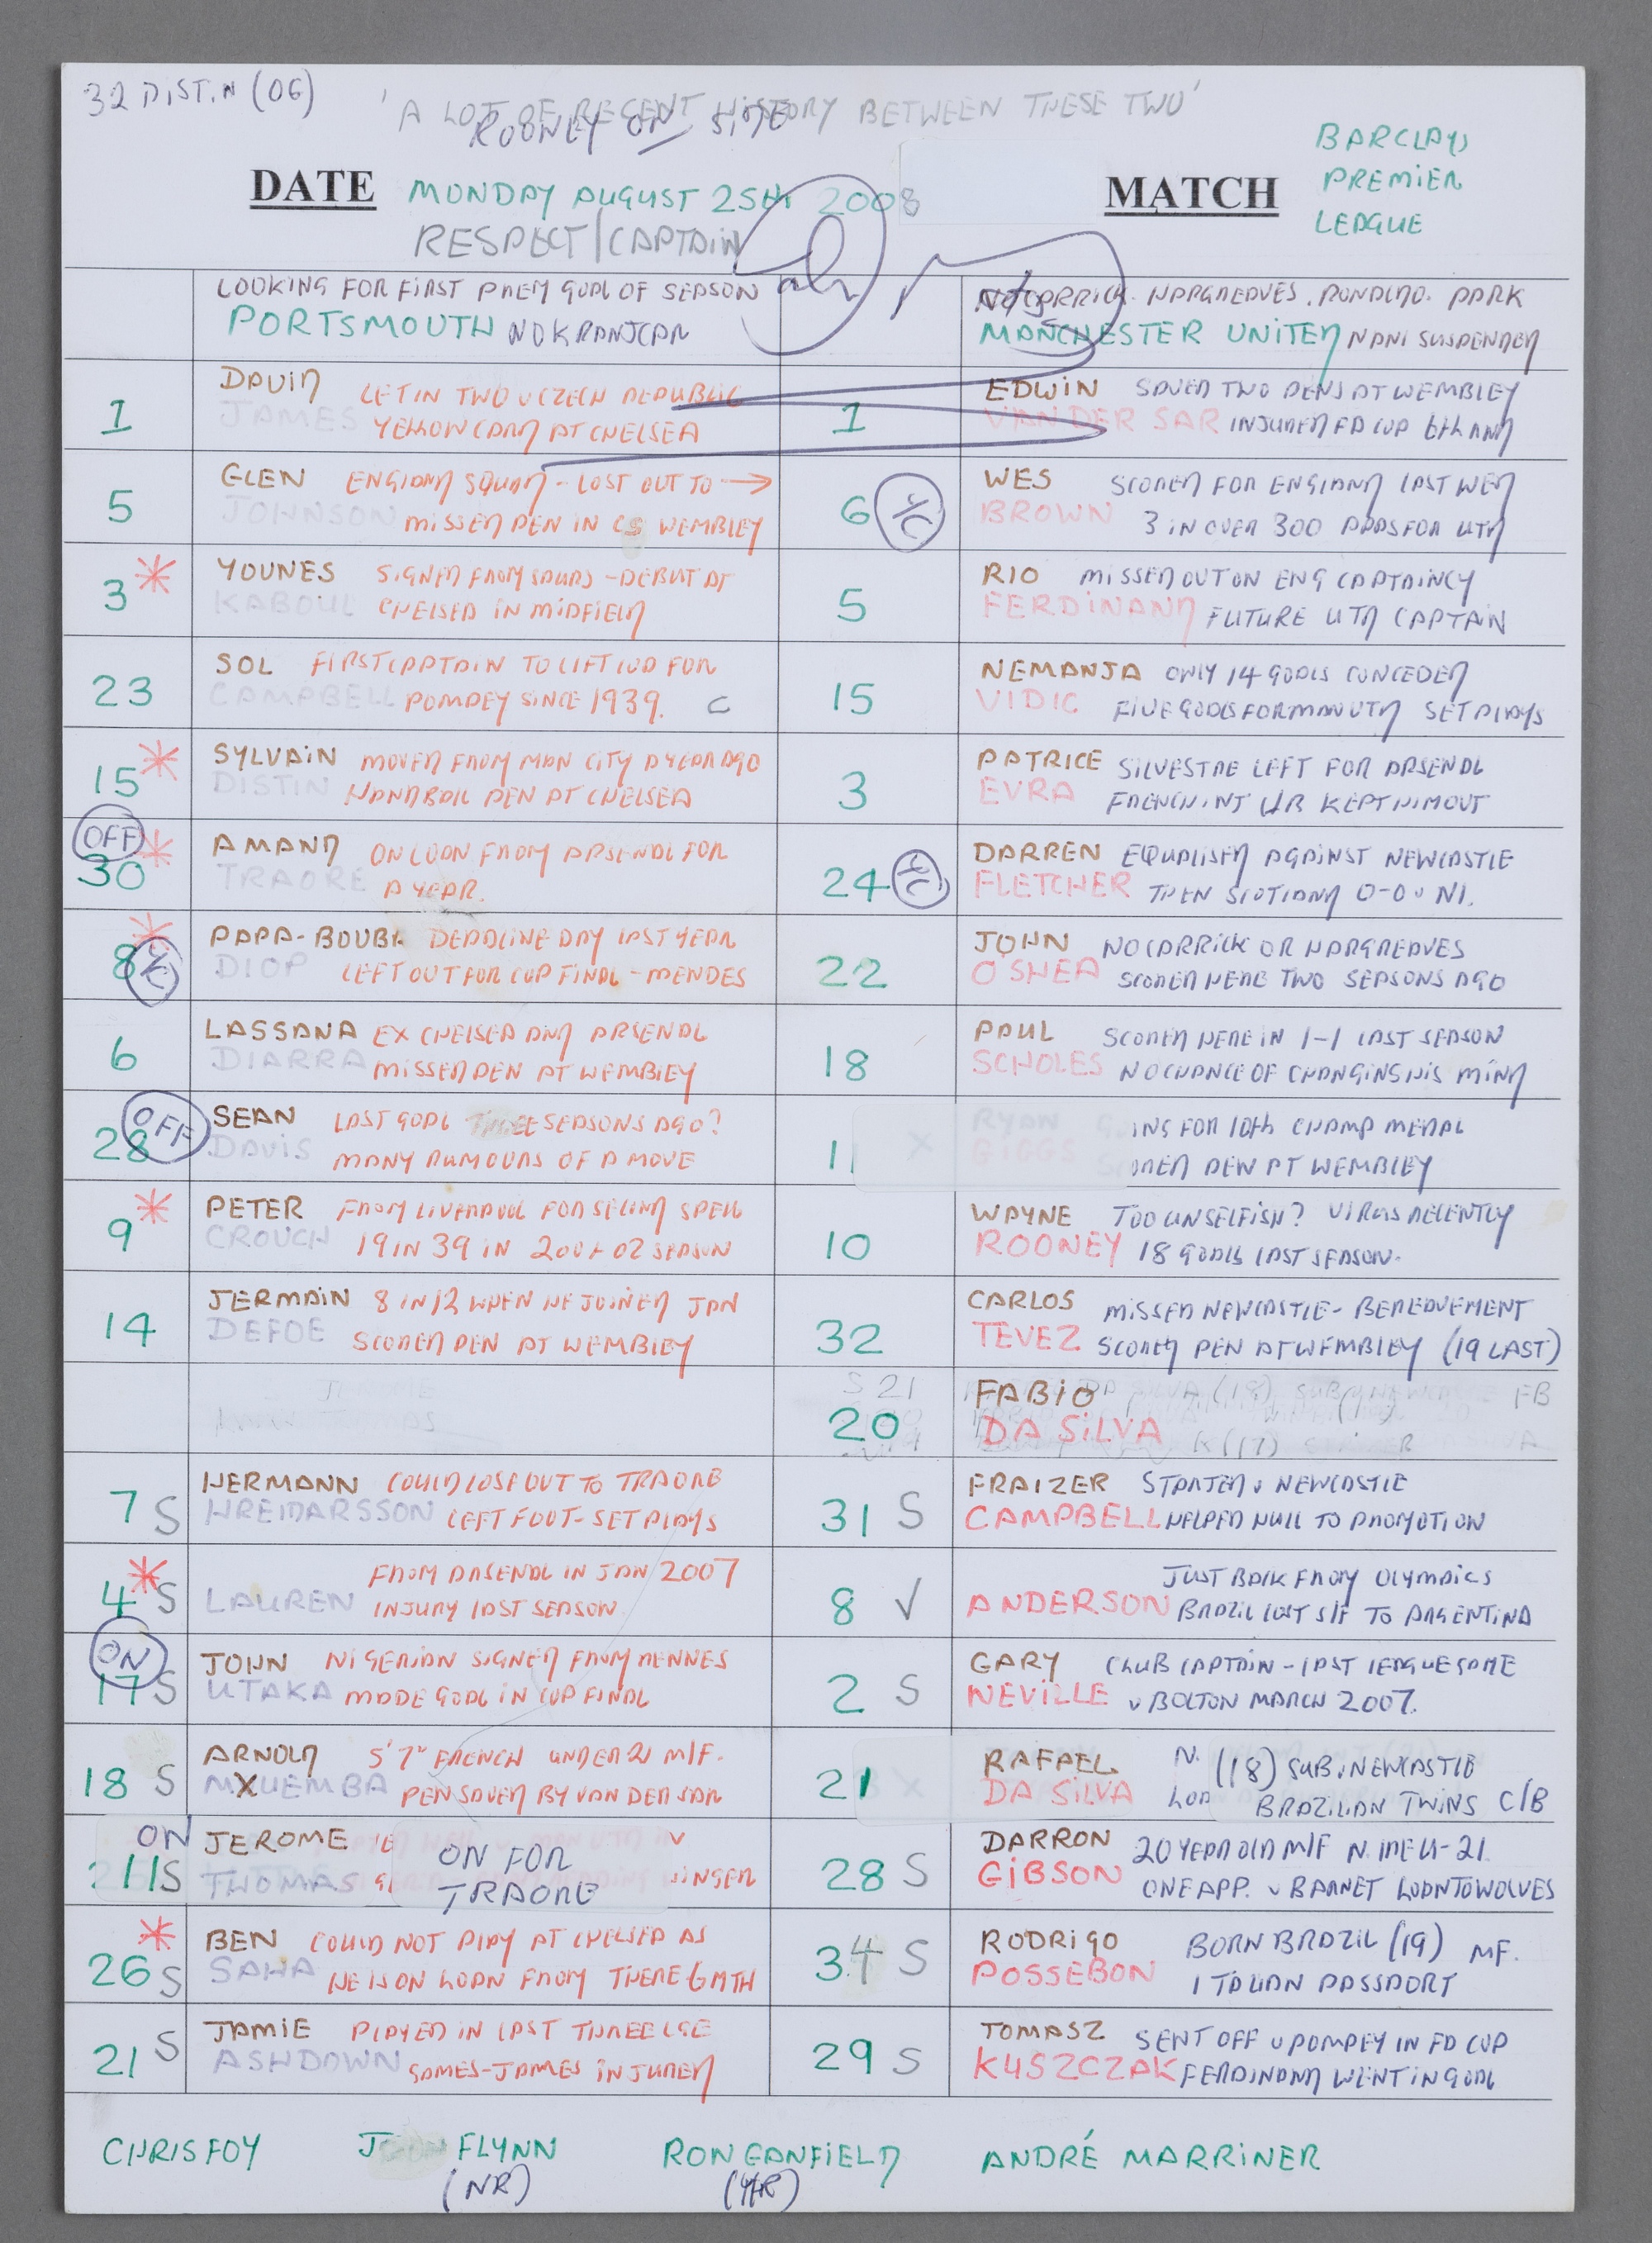 32 DISTIN (OG)
'A LOT OF RECENT HISTORY BETWEEN THESE TWO'
ROONEY ON SIDE
BARCLAYS
PREMIER
LEAGUE
DATE MONDAY AUGUST 25th 2008
MATCH
RESPECT/CAPTAIN
LOOKING FOR FIRST PREM GOAL OF SEASON
PORTSMOUTH NO KRANJCAR
NO CARRICK. HARGREAVES. RONALDO. PARK
MANCHESTER UNITED NANI SUSPENDED
1 DAVID JAMES LET IN TWO v CZECH REPUBLIC
YELLOW CARD AT CHELSEA
1 EDWIN VAN DER SAR SAVED TWO PENS AT WEMBLEY
INJURED FA CUP 6th RND
5 GLEN JOHNSON ENGLAND SQUAD - LOST OUT TO →
MISSED PEN IN CS WEMBLEY
6 Y/C WES BROWN SCORED FOR ENGLAND LAST WED
3 IN OVER 300 APPS FOR UTD
3 * YOUNES KABOUL SIGNED FROM SPURS - DEBUT AT
CHELSEA IN MIDFIELD
5 RIO FERDINAND MISSED OUT ON ENG CAPTAINCY
FUTURE UTD CAPTAIN
23 SOL CAMPBELL FIRST CAPTAIN TO LIFT CUP FOR
POMPEY SINCE 1939. C
15 NEMANJA VIDIC ONLY 14 GOALS CONCEDED
FIVE GOALS FOR MAN UTD SET PLAYS
15 * SYLVAIN DISTIN MOVED FROM MAN CITY A YEAR AGO
HANDBALL PEN AT CHELSEA
3 PATRICE EVRA SILVESTRE LEFT FOR ARSENAL
FRENCH INT
KEPT HIM OUT
OFF
30 * AMAND TRAORE ON LOAN FROM ARSENAL FOR
A YEAR.
24 Y/C DARREN FLETCHER EQUALISED AGAINST NEWCASTLE
THEN SCOTLAND 0-0 v NI.
8 * Y/C PAPA-BOUBA DIOP DEADLINE DAY LAST YEAR
LEFT OUT FOR CUP FINAL - MENDES
22 JOHN O'SHEA NO CARRICK OR HARGREAVES
SCORED HERE TWO SEASONS AGO
6 LASSANA DIARRA EX CHELSEA AND ARSENAL
MISSED PEN AT WEMBLEY
18 PAUL SCHOLES SCORED HERE IN 1-1 LAST SEASON
NO CHANCE OF CHANGING HIS MIND
OFF
28 SEAN DAVIS LAST GOAL THREE SEASONS AGO?
MANY RUMOURS OF A MOVE
11 X RYAN GIGGS
INS FOR 10th CHAMP MEDAL
ORED PEN AT WEMBLEY
9 * PETER CROUCH FROM LIVERPOOL FOR SECOND SPELL
19 IN 39 IN 2001 02 SEASON
10 WAYNE ROONEY TOO UNSELFISH? VIRUS RECENTLY
18 GOALS LAST SEASON.
14 JERMAIN DEFOE 8 IN 12 WHEN HE JOINED JAN
SCORED PEN AT WEMBLEY
32 CARLOS TEVEZ MISSED NEWCASTLE - BEREAVEMENT
SCORED PEN AT WEMBLEY (19 LAST)
20 FABIO DA SILVA
S 21
FB
7 S HERMANN HREIDARSSON COULD LOSE OUT TO TRAORE
LEFT FOOT - SET PLAYS
31 S FRAIZER CAMPBELL STARTED v NEWCASTLE
HELPED HULL TO PROMOTION
4 * S LAUREN FROM ARSENAL IN JAN 2007
INJURY LAST SEASON
8 ✓ ANDERSON JUST BACK FROM OLYMPICS
BRAZIL LOST S/F TO ARGENTINA
ON
17 S JOHN UTAKA NIGERIAN SIGNED FROM RENNES
MADE GOAL IN CUP FINAL
2 S GARY NEVILLE CLUB CAPTAIN - LAST LEAGUE GAME
v BOLTON MARCH 2007.
18 S ARNOLD MXUEMBA 5'7" FRENCH UNDER 21 M/F.
PEN SAVED BY VAN DER SAR
21 RAFAEL DA SILVA N. (18) SUB v NEWCASTLE
LOA BRAZILIAN TWINS C/B
ON
11 S JEROME THOMAS
ON FOR
TRAORE
INGER
28 S DARRON GIBSON 20 YEAR OLD M/F N. IRE U-21.
ONE APP. v BARNET LOAN TO WOLVES
26 * S BEN SAHA COULD NOT PLAY AT CHELSEA AS
HE IS ON LOAN FROM THERE 6 MTH
34 S RODRIGO POSSEBON BORN BRAZIL (19) MF.
ITALIAN PASSPORT
21 S JAMIE ASHDOWN PLAYED IN LAST THREE LGE
GAMES - JAMES INJURED
29 S TOMASZ KUSZCZAK SENT OFF v POMPEY IN FA CUP
FERDINAND WENT IN GOAL
CHRIS FOY JOHN FLYNN RON GANFIELD ANDRÉ MARRINER
(NR) (YHR)